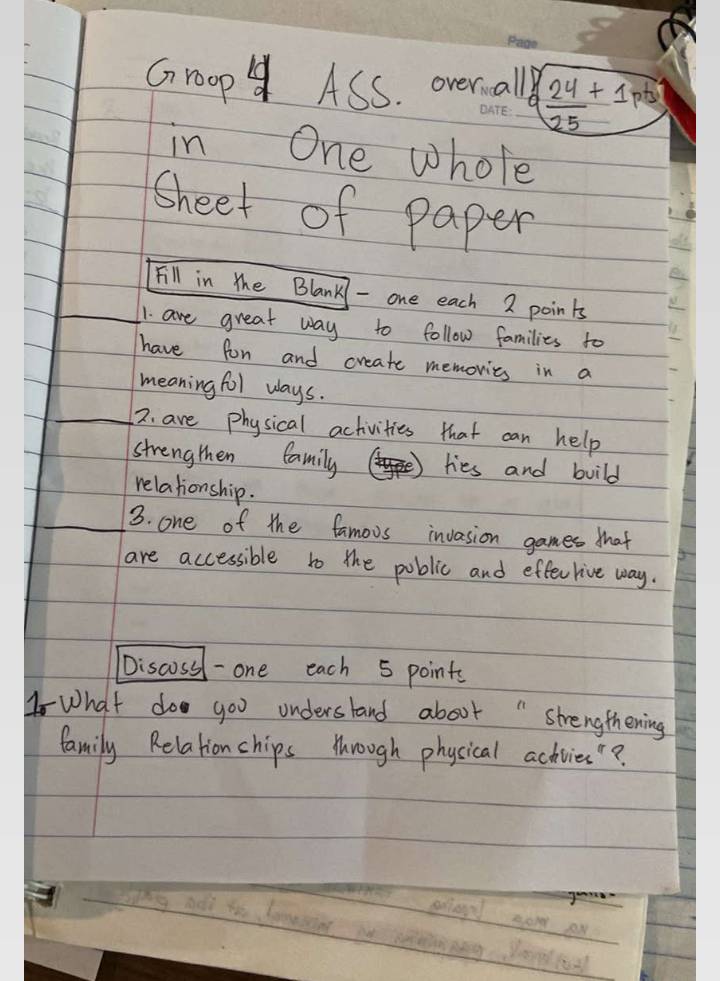 Page
Group 4 ASS. over all 24 + 1pts
NO.
DATE: 25
in One whole
Sheet of paper
Fill in the Blank - one each 2 points
1. are great way to follow families to
have fun and create memories in a
meaningful ways.
2. are physical activities that can help
strengthen family (type) ties and build
relationship.
3. one of the famous invasion games that
are accessible to the public and effective way.
Discuss - one each 5 points
1. What do you understand about "strengthening
family Relationships through physical activies"?